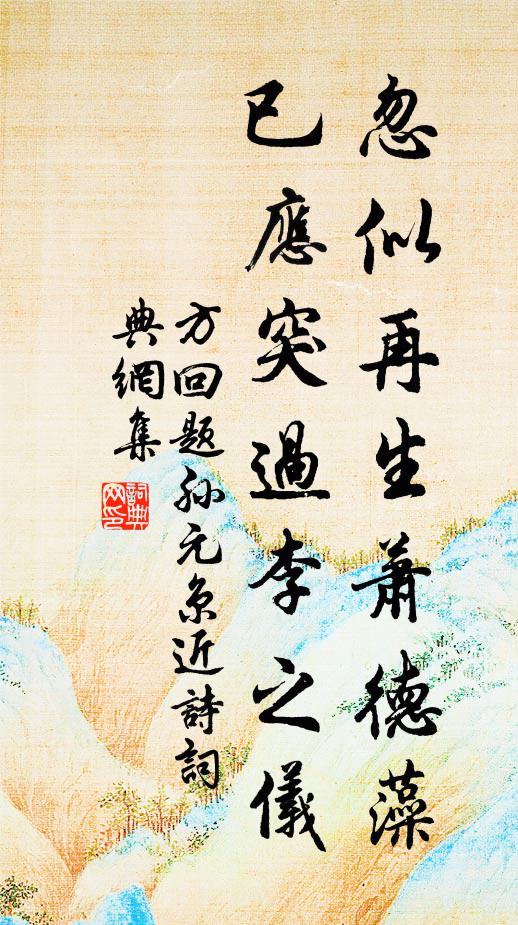 忽似再生萧德藻
已應突過李之儀
方回题孙元京近詩詞
典網集
詞典網印